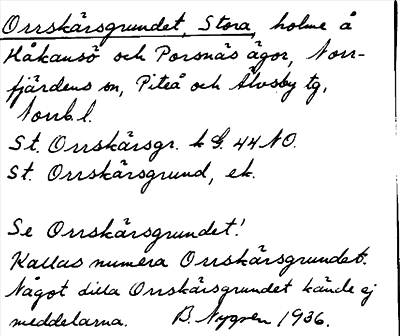 Orrskärsgrundet, Stora, holme å
Håkansö och Porsnäs ägor, Norr-
fjärdens sn, Piteå och Älvsby tg,
Norrb. l.
St. Orrskärsgr. k G. 44 NO.
St. Orrskärsgrund, ek.
Se Orrskärsgrundet!
Kallas numera Orrskärsgrundet.
Något dilla Orrskärsgrundet kände ej
meddelarna. B. Nygren 1936.